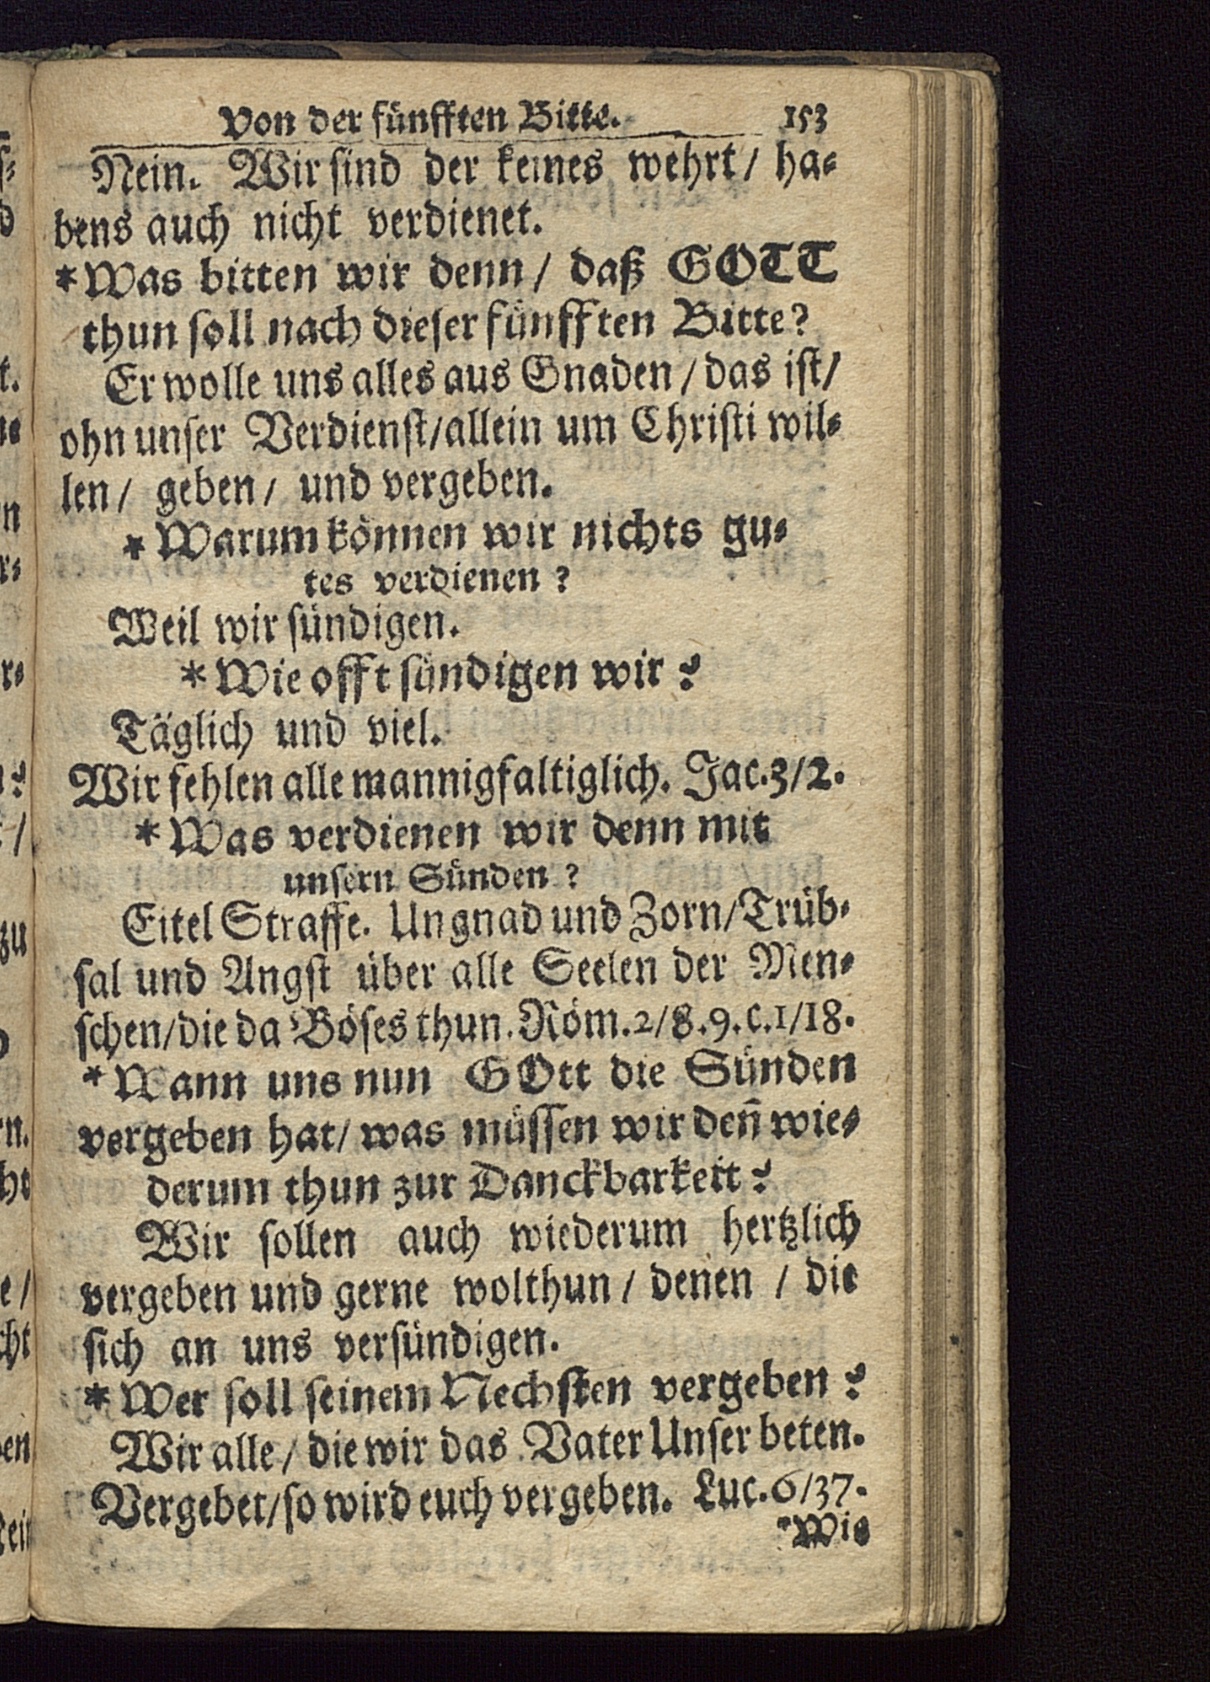 Von der fünfften Bitte. 153
Nein. Wir sind der keines wehrt / ha-
bens auch nicht verdienet.
*Was bitten wir denn / daß GOTT
thun soll nach dieser fünfften Bitte?
Er wolle uns alles aus Gnaden / das ist /
ohn unser Verdienst / allein um Christi wil-
len / geben / und vergeben.
* Warum können wir nichts gu-
tes verdienen ?
Weil wir sündigen.
* Wie offt sündigen wir ?
Täglich und viel.
Wir fehlen alle mannigfaltiglich. Jac. 3/2.
* Was verdienen wir denn mit
unsern Sünden ?
Eitel Straffe. Ungnad und Zorn / Trüb-
sal und Angst über alle Seelen der Men-
schen / die da Böses thun. Röm. 2/8.9. c. 1/18.
* Wann uns nun GOtt die Sünden
vergeben hat / was müssen wir deñ wie-
derum thun zur Danckbarkeit ?
Wir sollen auch wiederum hertzlich
vergeben und gerne wolthun / denen / die
sich an uns versündigen.
* Wer soll seinem Nechsten vergeben ?
Wir alle / die wir das Vater Unser beten.
Vergebet / so wird euch vergeben. Luc. 6/37.
*Wie